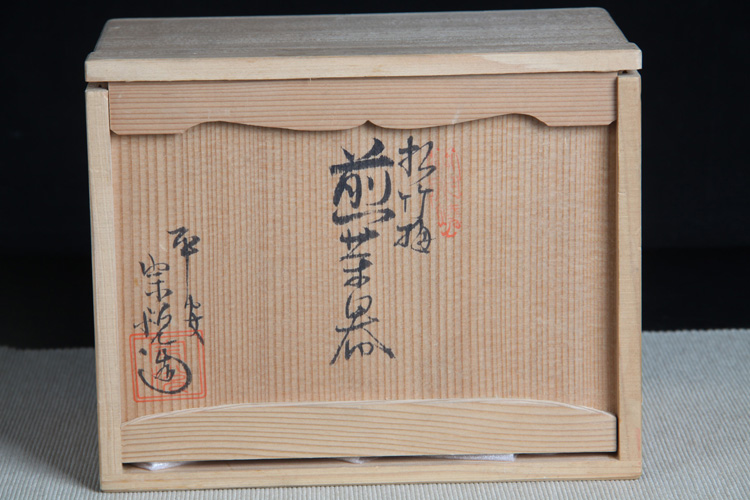 松竹梅
煎茶器
平安
宗悦造